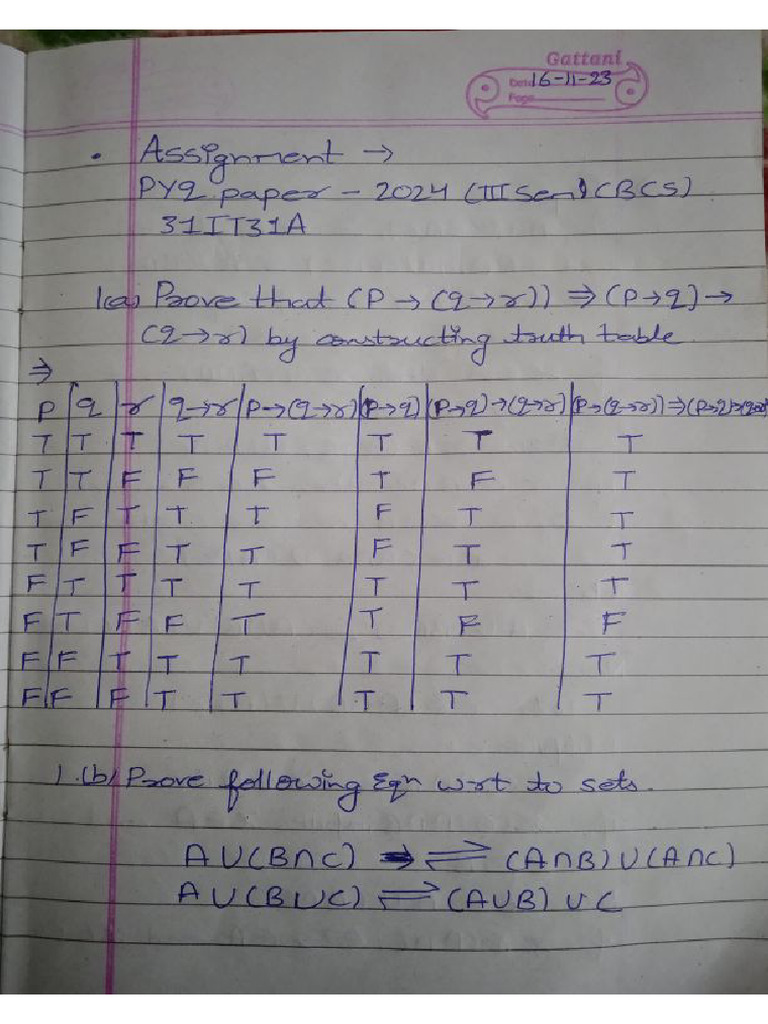 Gattani
Date 16-11-23
Page
• Assignment →
PYQ paper - 2024 (III Sem) (BCS)
31IT31A
1(a) Prove that (P → (q → r)) ⇒ (P → q) →
(q → r) by constructing truth table
⇒
P q r q→r P→(q→r) (P→q) (P→q)→(q→r) (P→(q→r))⇒(P→q)→(q→r)
T T T T T T T T
T T F F F T F T
T F T T T F T T
T F F T T F T T
F T T T T T T T
F T F F T T F F
F F T T T T T T
F F F T T T T T
1.(b) Prove following Eqn wrt to sets.
A∪(B∩C) ⇌ (A∩B)∪(A∩C)
A∪(B∪C) ⇌ (A∪B)∪C